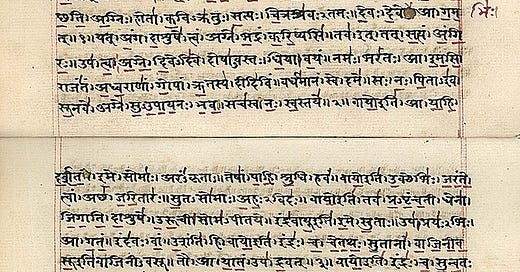 छति। अग्निः। होता। कवि ऋतुः। सत्यः। चित्रश्रवःऽतमः। देवः। देवे आ। गम भिः।
त्॥१॥ यत्। अंग। दाशुषे। त्वं। अग्ने। भद्रं। करिष्यसि। तव। इत्। तत्। सत्यं। अंगि
रः॥ उप। त्वा। अग्ने। दिवेऽदिवे। दोषाऽवस्तः। धिया। वयं। नमः। भरंतः। आ। इमसि॥
राजंतं। अध्वराणां। गोपां। ऋतस्य। दीदिविं। वर्धमानं। स्वे। दमे॥ सः। नः। पिताऽइव
सूनवे। अग्ने। सुऽउपायनः। भव। सचस्व। नः। स्वस्तये॥२॥ वायो इति। आ। याहि।
दर्शत। इमे। सोमाः। अरंऽकृताः॥ तेषां। पाहि। श्रुधि। हवं॥ वायो इति। उक्थेभिः। जरंते
त्वां। अच्छ। जरितारः॥ सुतऽसोमाः। अहःऽविदः॥ वायो इति। तव। प्रऽपृंचती। धेना
जिगाति। दाशुषे॥ उरूची। सोमऽपीतये॥ इंद्रवायू इति। इमे। सुताः॥ उप। प्रयःऽभिः।
आ। गतं॥ इंदवः। वां। उशंति। हि॥ वायो इति। इंद्रः। च। चेतथः। सुतानां। वाजिनीव
सू इति वाजिनीऽवसू॥ तौ। आ। यातं। उप। द्रवत्॥३॥ वायो इति। इंद्रः। च। सुन्वतः